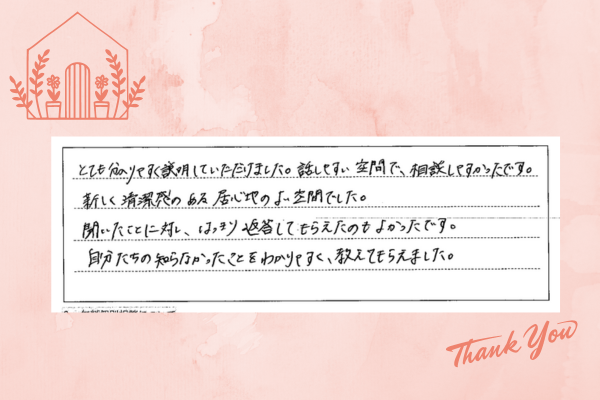 とても分かりやすく説明していただけました。話しやすい空間で、相談しやすかったです。
新しく清潔感のある居心地のよい空間でした。
聞いたことに対し、はっきり返答してもらえたのもよかったです。
自分たちの知らなかったことをわかりやすく、教えてもらえました。
Thank You